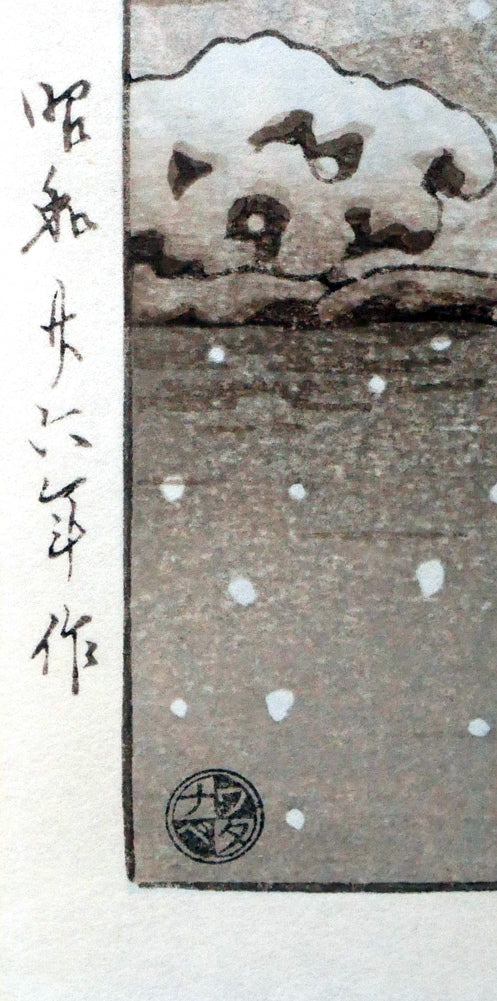 昭和廿六年作
ワタナベ